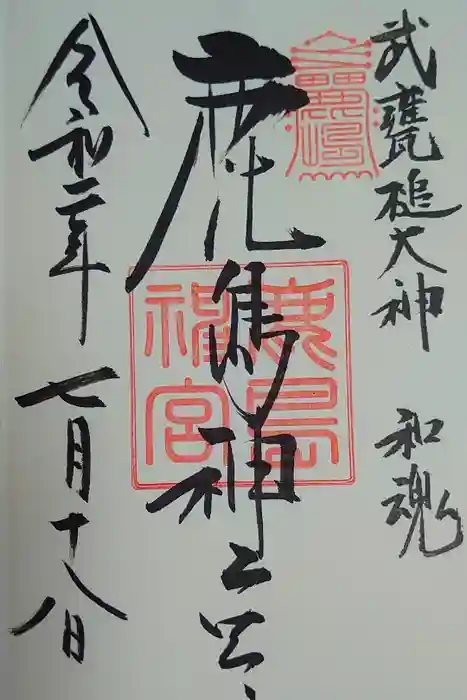 武甕槌大神 和魂
鹿嶋神宮
鹿島神宮
令和二年 七月十八日